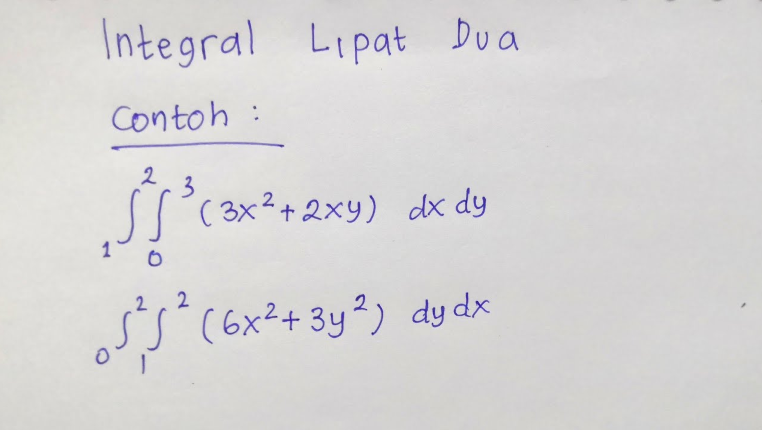 Integral Lipat Dua
Contoh :
₁∫²₀∫³ (3x² + 2xy) dx dy
₀∫²₁∫² (6x² + 3y²) dy dx